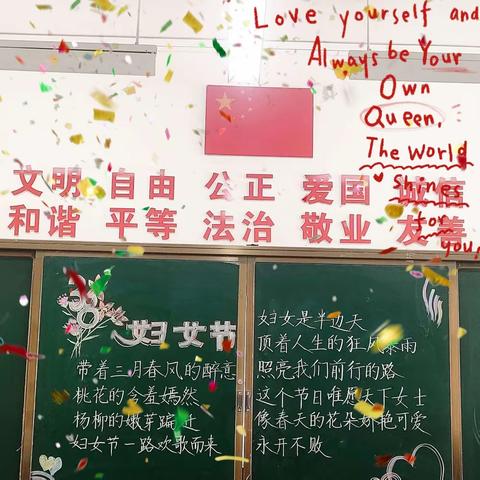 Love yourself and
Always be Your
Own
Queen.
The World
Shines
for
you,
文明 自由 公正 爱国 诚信
和谐 平等 法治 敬业 友善
妇女节
带着三月春风的醉意
桃花的含羞嫣然
杨柳的嫩芽蹁迁
妇女节一路欢歌而来
妇女是半边天
顶着人生的狂风暴雨
照亮我们前行的路
这个节日唯愿天下女士
像春天的花朵娇艳可爱
永开不败